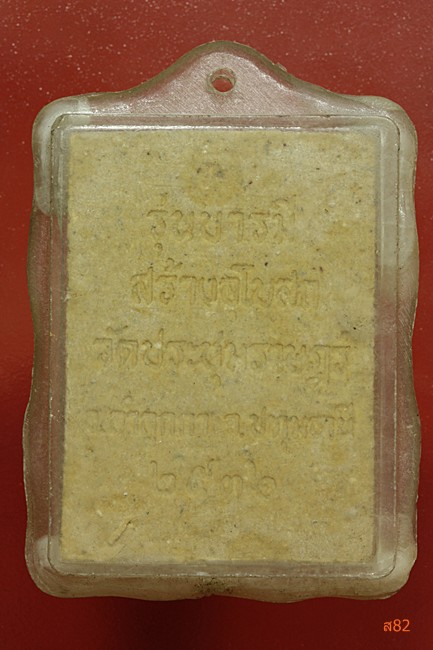 รุ่นบารมี
สร้างอุโบสถ
วัดประชุมราษฎร์
อ.ลำลูกกา จ.ปทุมธานี
๒๕๓๖
ส82